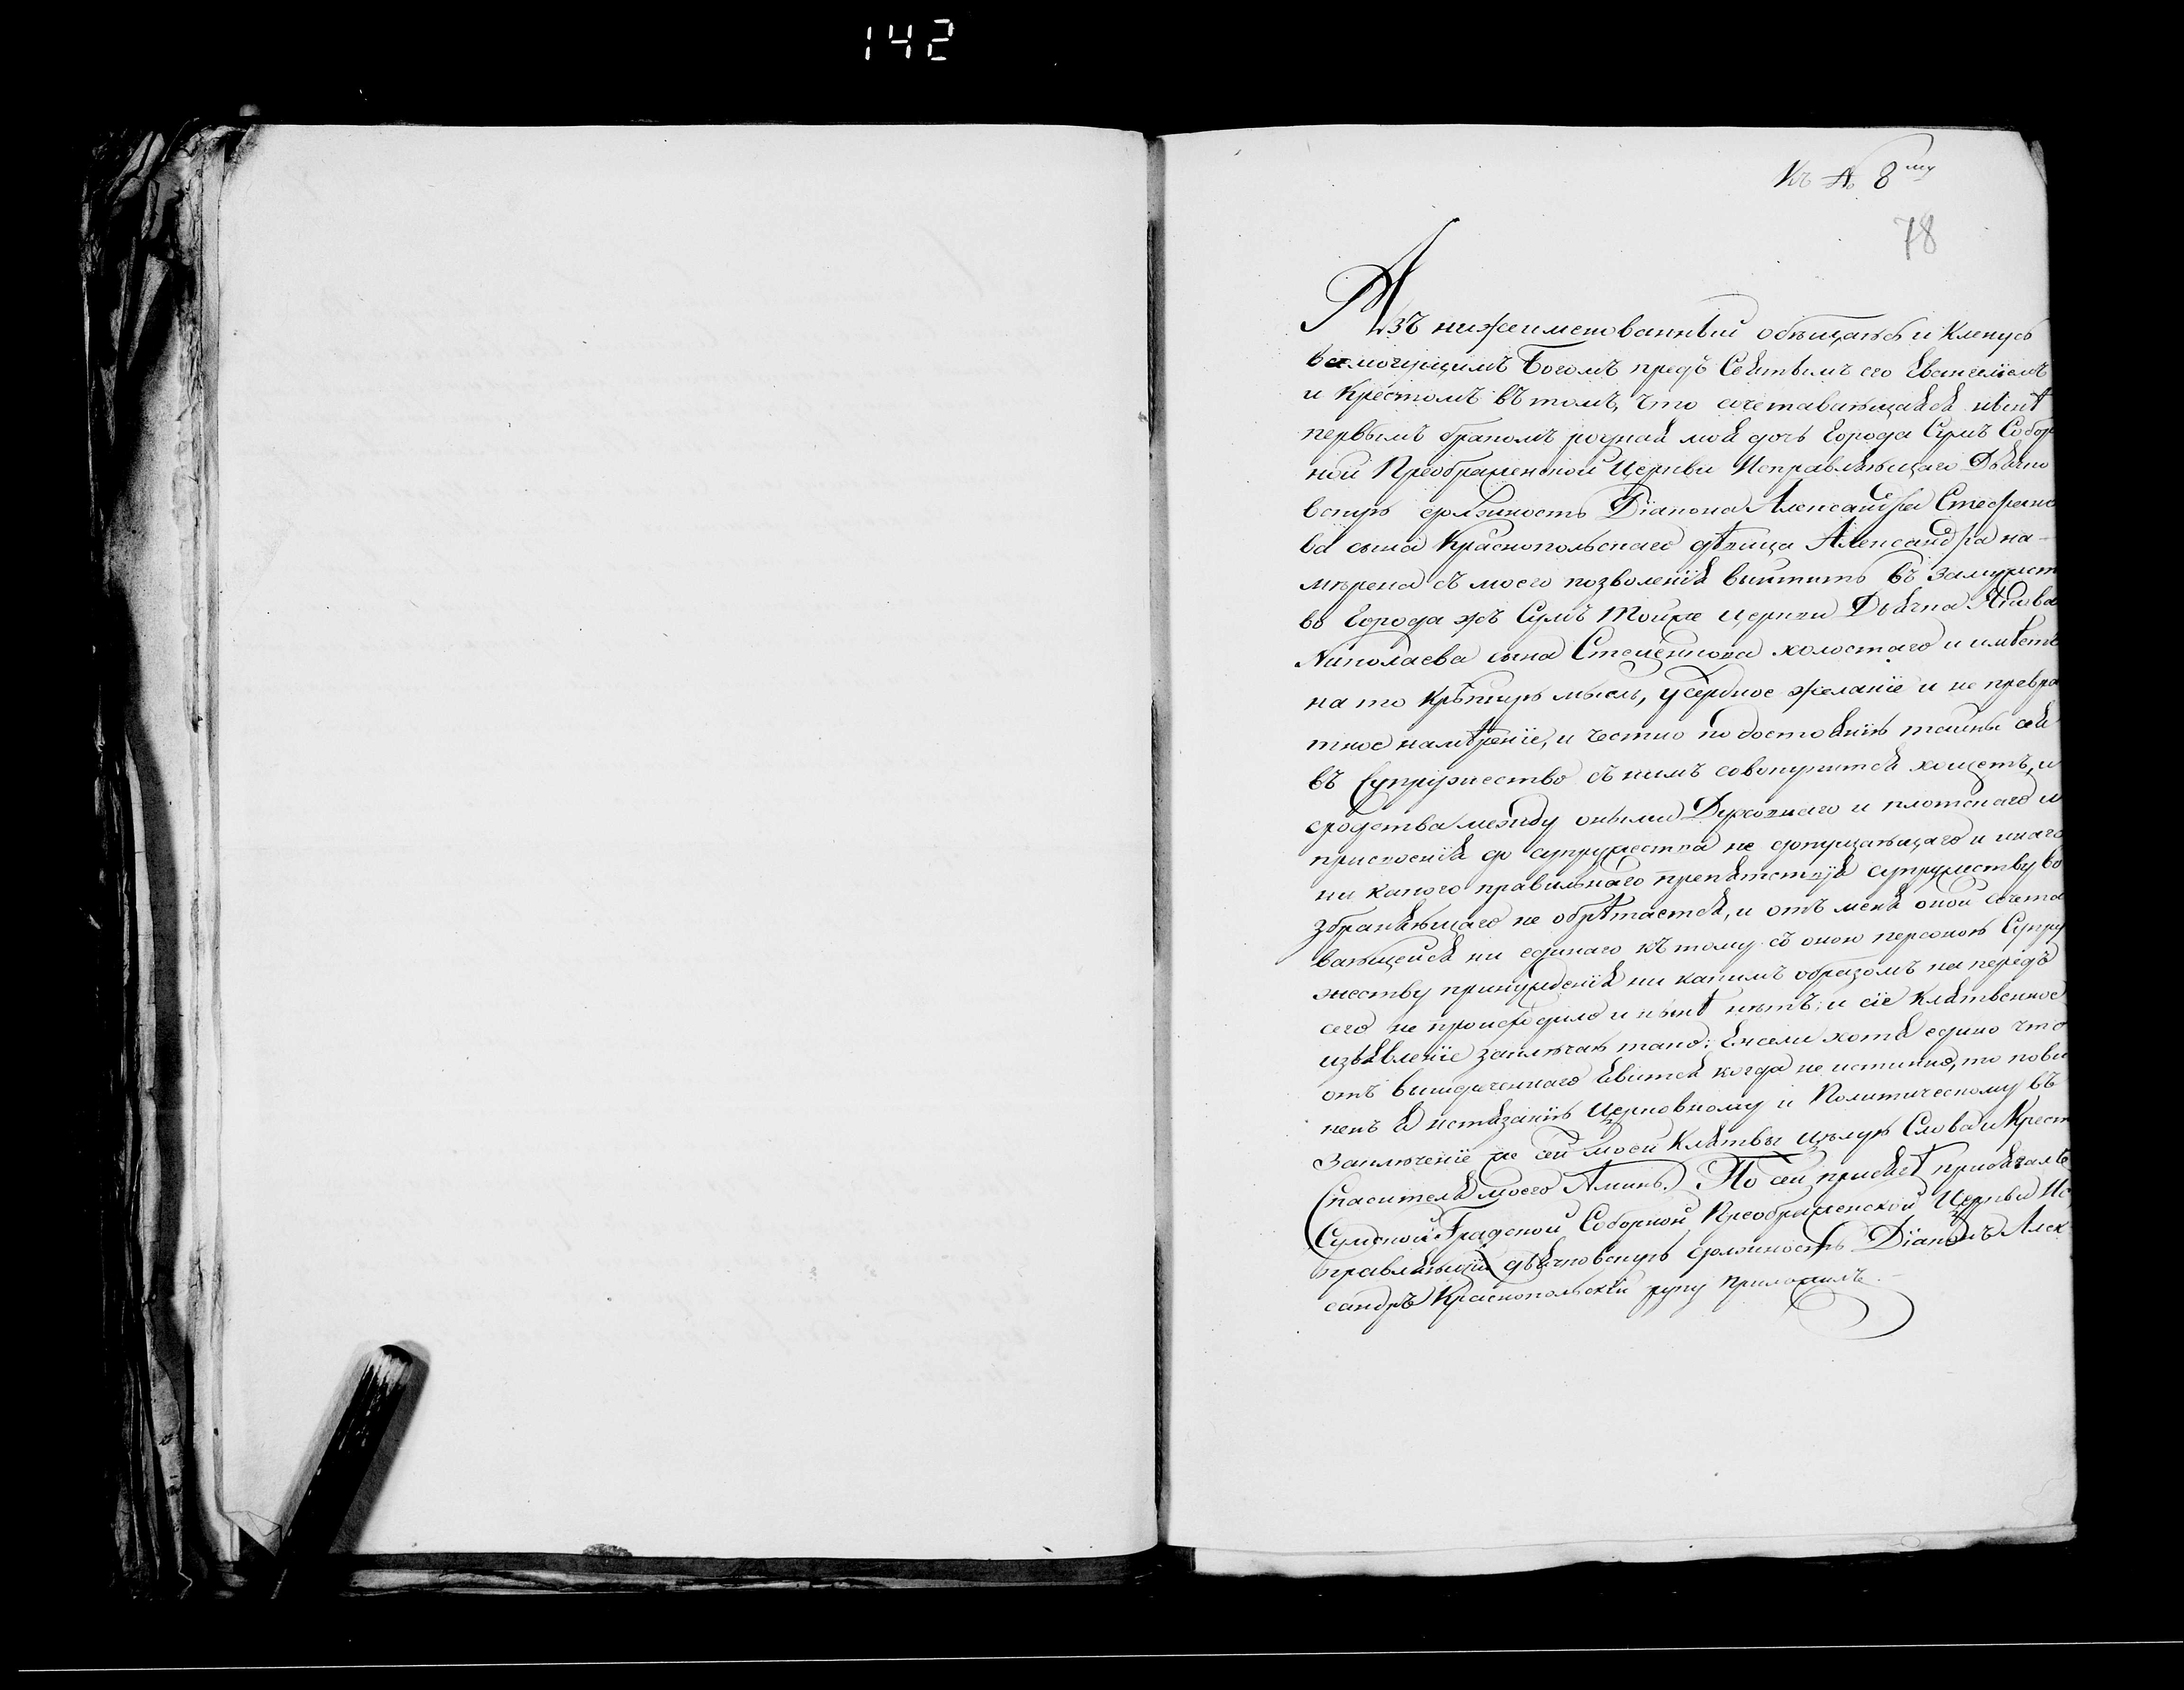 142
Къ № 8му
78
Азъ нижеименованный обѣщаюсь и кленусь
всемогущимъ Богомъ предъ Святымъ его Евангелiемъ
и Крестомъ въ томъ, что сочетавающаяся нынѣ
первымъ бракомъ родная моя дочь Города Сумъ Собор
ной Преображенской Церкви Исправляющаго Дьячко
вскую должность Дiакона Александра Стефано
ва сына Краснопольскаго дѣвица Александра на-
мѣрена съ моего позволенiя вступить въ замужест
во Города жъ Сумъ Тойже церкви Дьячка Якова
Николаева сына Стеценкова холостаго и имѣетъ
на то крѣпкую мысль, усердное желанiе и не превра
тное намѣренiе, и честно по достоянiю тайны сея
въ супружество съ нимъ совокупится хощетъ, и
сродства между оными Духовнаго и плотскаго и
присвоенiя до супружества не допущающаго и инаго
ни какого правильнаго препятствiя супружеству во
збраняющаго не обрѣтается, и отъ меня оной сочета
вающейся ни единаго къ тому съ оною персоною супру
жеству принужденiя ни какимъ образомъ на передъ
сего не происходило и нынѣ нѣтъ; и сiе клятвенное
изъявленiе заключаю тако: Ежели хотя едино что
отъ вышереченнаго явится когда не истинно, то пови
ненъ я истязанiю Церковному и Политическому въ
Заключенiе же сей моей Клятвы цѣлую Слова и Крест
Спасителя моего Аминь. По сей присягѣ присягалъ
Сумской Градской Соборной Преображенской Церкви Ис
правляющiй дьячковскую должность Дiаконъ Алек
сандръ Краснопольскiй руку приложилъ.